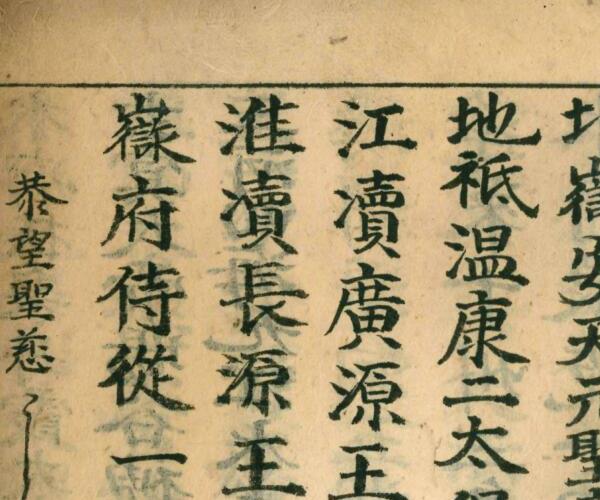 嶽安天元聖
地祇温康二太
江瀆廣源王
淮瀆長源王
嶽府侍從一
恭望聖慈